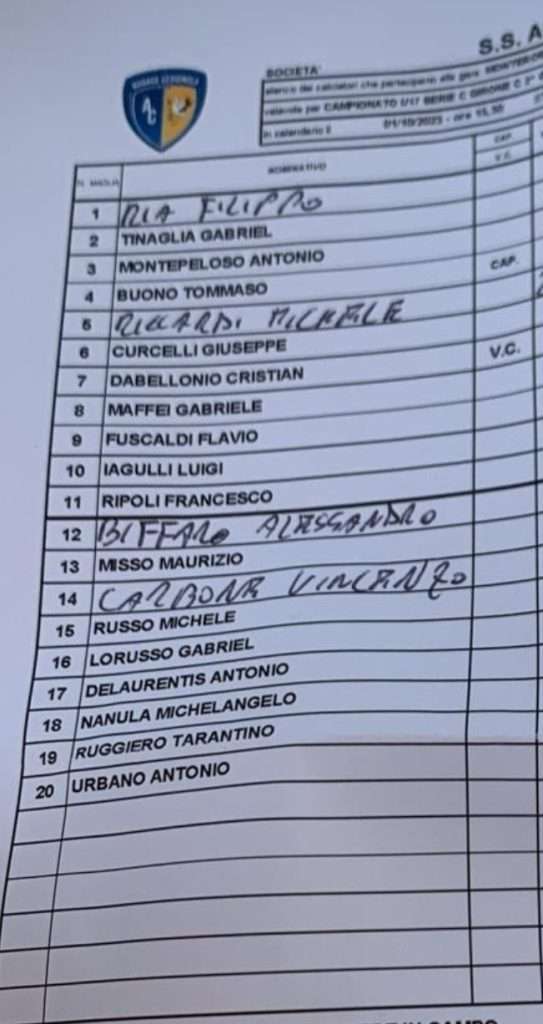 S.S. A
SOCIETA'
elenco dei calciatori che partecipano alla gara
valevole per CAMPIONATO U17 SERIE C GIRONE C
in calendario il 01/10/2023 - ore 15,30
N. MAGLIA NOMINATIVO CAP. V.C.
1 RIA FILIPPO
2 TINAGLIA GABRIEL
3 MONTEPELOSO ANTONIO
4 BUONO TOMMASO CAP.
5 RICCARDI MICHELE
6 CURCELLI GIUSEPPE
7 DABELLONIO CRISTIAN V.C.
8 MAFFEI GABRIELE
9 FUSCALDI FLAVIO
10 IAGULLI LUIGI
11 RIPOLI FRANCESCO
12 BIFFARO ALESSANDRO
13 MISSO MAURIZIO
14 CARBONE VINCENZO
15 RUSSO MICHELE
16 LORUSSO GABRIEL
17 DELAURENTIS ANTONIO
18 NANULA MICHELANGELO
19 RUGGIERO TARANTINO
20 URBANO ANTONIO